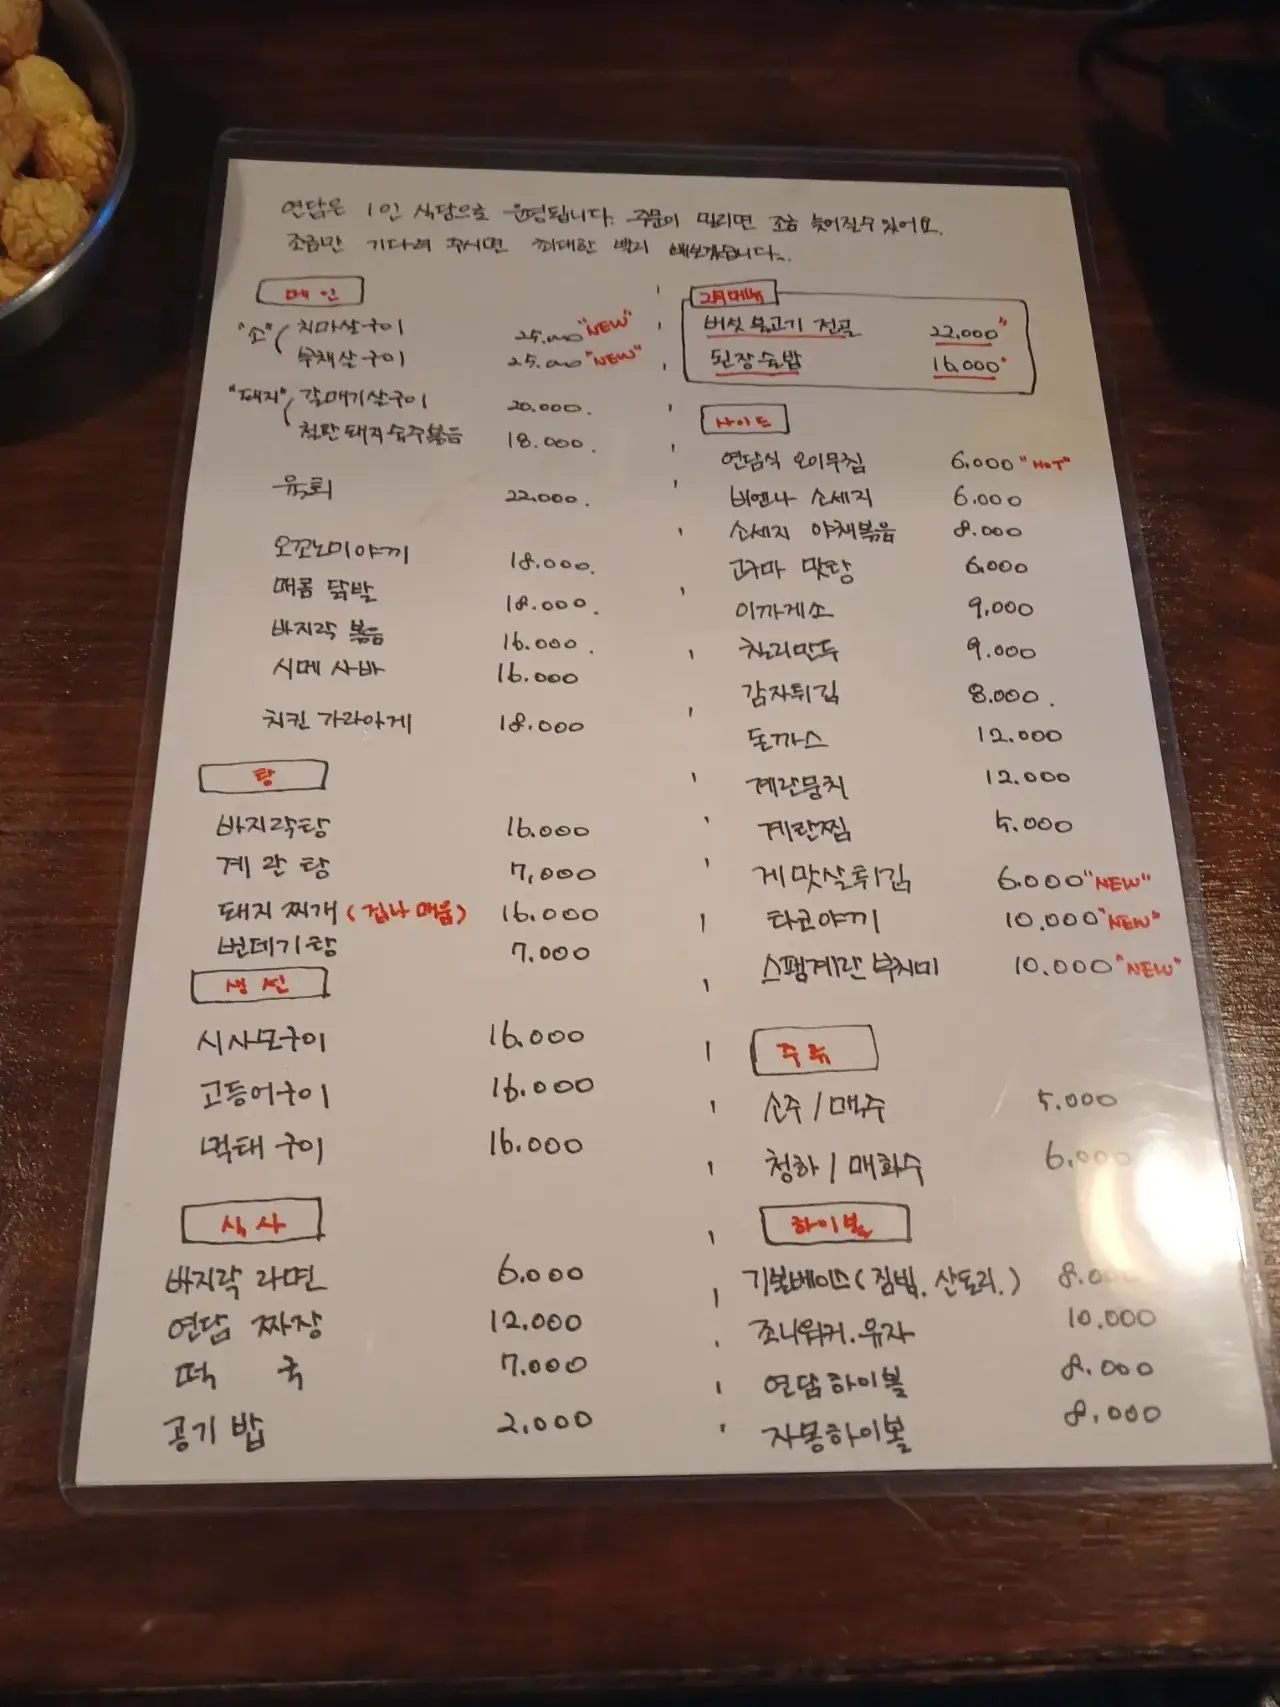 연담은 1인 식당으로 운영됩니다. 주문이 밀리면 조금 늦어질수 있어요.
조금만 기다려 주시면 최대한 빨리 해보겠습니다..
메인
"소" 치마살구이 25.000 "NEW"
부채살구이 25.000 "NEW"
"돼지" 갈매기살구이 20.000.
철판돼지숙주볶음 18.000.
육회 22.000.
오꼬노미야끼 18.000.
매콤 닭발 18.000.
바지락 볶음 16.000.
시메 사바 16.000
치킨 가라아게 18.000
탕
바지락탕 16.000
계란탕 7,000
돼지찌개 (겁나 매움) 16.000
번데기탕 7.000
생선
시사모구이 16.000
고등어구이 16.000
먹태구이 16.000
식사
바지락 라면 6.000
연담 짜장 12.000
떡국 7.000
공기밥 2,000
2月메뉴
버섯 불고기 전골 22.000"
된장술밥 16.000"
사이드
연담식 오이무침 6.000 "HOT"
비엔나 소세지 6.000
소세지 야채볶음 8.000
고구마 맛탕 6.000
이까게소 9.000
칠리만두 9.000
감자튀김 8.000.
돈까스 12.000
계란뭉치 12.000
계란찜 5.000
게맛살튀김 6.000 "NEW"
타코야끼 10.000 "NEW"
스팸계란 부치미 10.000 "NEW"
주류
소주 / 맥주 5.000
청하 / 매화수 6.000
하이볼
기본베이스 (짐빔. 산토리.) 8.000
조니워커. 유자 10.000
연담하이볼 8.000
자몽하이볼 8.000